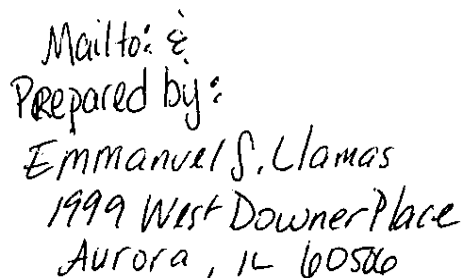 Mail to: &
Prepared by:
Emmanuel S. Llamas
1999 West Downer Place
Aurora, IL 60506